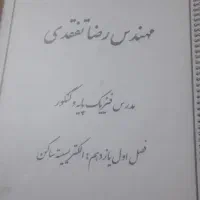 مهندس رضا تفقدی
مدرس فیزیک پایه و کنکور
فصل اول یازدهم: الکتریسیته ساکن